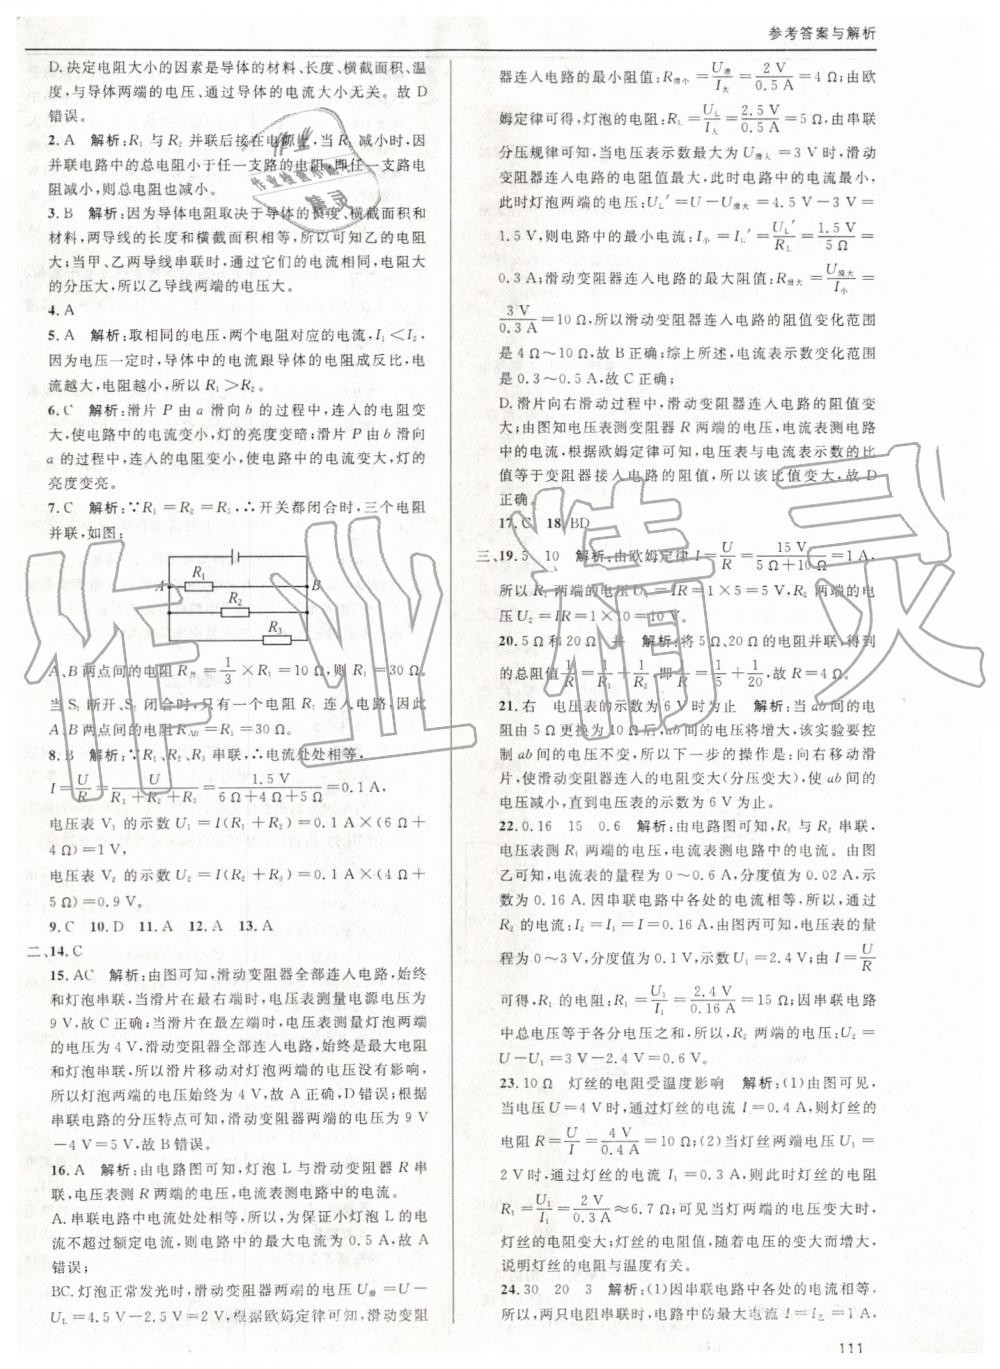 参考答案与解析
D.决定电阻大小的因素是导体的材料、长度、横截面积、温
度,与导体两端的电压、通过导体的电流大小无关。故 D
错误。
2. A　解析:R₁ 与 R₂ 并联后接在电源上,当 R₁ 减小时,因
并联电路中的总电阻小于任一支路的电阻,即任一支路电
阻减小,则总电阻也减小。
3. B　解析:因为导体电阻取决于导体的长度、横截面积和
材料,两导线的长度和横截面积相等,所以可知乙的电阻
大;当甲、乙两导线串联时,通过它们的电流相同,电阻大
的分压大,所以乙导线两端的电压大。
4. A
5. A　解析:取相同的电压,两个电阻对应的电流,I₁＜I₂,
因为电压一定时,导体中的电流跟导体的电阻成反比,电
流越大,电阻越小,所以 R₁＞R₂。
6. C　解析:滑片 P 由 a 滑向 b 的过程中,连入的电阻变
大,使电路中的电流变小,灯的亮度变暗;滑片 P 由 b 滑向
a 的过程中,连入的电阻变小,使电路中的电流变大,灯的
亮度变亮。
7. C　解析:∵R₁＝R₂＝R₃,∴开关都闭合时,三个电阻
并联,如图:
A R₁ B
R₂
R₃
A、B 两点间的电阻 R并＝1/3×R₁＝10 Ω,则 R₁＝30 Ω。
当 S₁ 断开、S₂ 闭合时,只有一个电阻 R₁ 连入电路,因此
A、B 两点间的电阻 R_AB＝R₁＝30 Ω。
8. B　解析:∵R₁、R₂、R₃ 串联,∴电流处处相等,
I＝U/R＝U/(R₁＋R₂＋R₃)＝1.5 V/(6 Ω＋4 Ω＋5 Ω)＝0.1 A,
电压表 V₁ 的示数 U₁＝I(R₁＋R₂)＝0.1 A×(6 Ω＋
4 Ω)＝1 V,
电压表 V₂ 的示数 U₂＝I(R₂＋R₃)＝0.1 A×(4 Ω＋
5 Ω)＝0.9 V。
9. C　10. D　11. A　12. A　13. A
二、14. C
15. AC　解析:由图可知,滑动变阻器全部连入电路,始终
和灯泡串联,当滑片在最右端时,电压表测量电源电压为
9 V,故 C 正确;当滑片在最左端时,电压表测量灯泡两端
的电压为 4 V,滑动变阻器全部连入电路,始终是最大电阻
和灯泡串联,所以滑片移动对灯泡两端的电压没有影响,
所以灯泡两端的电压始终为 4 V,故 A 正确,D 错误;根据
串联电路的分压特点可知,滑动变阻器两端的电压为 9 V
－4 V＝5 V,故 B 错误。
16. A　解析:由电路图可知,灯泡 L 与滑动变阻器 R 串
联,电压表测 R 两端的电压,电流表测电路中的电流。
A.串联电路中电流处处相等,所以,为保证小灯泡 L 的电
流不超过额定电流,则电路中的最大电流为 0.5 A,故 A
错误;
BC.灯泡正常发光时,滑动变阻器两端的电压 U滑＝U－
U_L＝4.5 V－2.5 V＝2 V,根据欧姆定律可知,滑动变阻
器连入电路的最小阻值:R滑小＝U滑/I大＝2 V/0.5 A＝4 Ω;由欧
姆定律可得,灯泡的电阻:R_L＝U_L/I大＝2.5 V/0.5 A＝5 Ω,由串联
分压规律可知,当电压表示数最大为 U滑大＝3 V 时,滑动
变阻器连入电路的电阻值最大,此时电路中的电流最小,
此时灯泡两端的电压:U_L′＝U－U滑大＝4.5 V－3 V＝
1.5 V,则电路中的最小电流:I小＝I_L′＝U_L′/R_L＝1.5 V/5 Ω＝
0.3 A;滑动变阻器连入电路的最大阻值:R滑大＝U滑大/I小＝
3 V/0.3 A＝10 Ω,所以滑动变阻器连入电路的阻值变化范围
是 4 Ω～10 Ω,故 B 正确;综上所述,电流表示数变化范围
是 0.3～0.5 A,故 C 正确;
D.滑片向右滑动过程中,滑动变阻器连入电路的阻值变
大;由图知电压表测变阻器 R 两端的电压,电流表测电路
中的电流,根据欧姆定律可知,电压表与电流表示数的比
值等于变阻器接入电路的阻值,所以该比值变大,故 D
正确。
17. C　18. BD
三、19. 5　10　解析:由欧姆定律 I＝U/R＝15 V/(5 Ω＋10 Ω)＝1 A,
所以 R₁ 两端的电压 U₁＝IR＝1×5＝5 V,R₂ 两端的电
压 U₂＝IR＝1×10＝10 V。
20. 5 Ω和 20 Ω　并　解析:将 5 Ω、20 Ω 的电阻并联,得到
的总阻值 1/R＝1/R₁＋1/R₂,即 1/R＝1/5＋1/20,故 R＝4 Ω。
21. 右　电压表的示数为 6 V 时为止　解析:当 ab 间的电
阻由 5 Ω 更换为 10 Ω 后,ab 间的电压将增大,该实验要控
制 ab 间的电压不变,所以下一步的操作是:向右移动滑
片,使滑动变阻器连入的电阻变大(分压变大),使 ab 间的
电压减小,直到电压表的示数为 6 V 为止。
22. 0.16　15　0.6　解析:由电路图可知,R₁ 与 R₂ 串联,
电压表测 R₁ 两端的电压,电流表测电路中的电流。由图
乙可知,电流表的量程为 0～0.6 A,分度值为 0.02 A,示数
为 0.16 A.因串联电路中各处的电流相等,所以,通过
R₂ 的电流:I₂＝I₁＝I＝0.16 A,由图丙可知,电压表的量
程为 0～3 V,分度值为 0.1 V,示数 U₁＝2.4 V;由 I＝U/R
可得,R₁ 的电阻:R₁＝U₁/I₁＝2.4 V/0.16 A＝15 Ω;因串联电路
中总电压等于各分电压之和,所以,R₂ 两端的电压:U₂＝
U－U₁＝3 V－2.4 V＝0.6 V。
23. 10 Ω　灯丝的电阻受温度影响　解析:(1)由图可见,
当电压 U＝4 V 时,通过灯丝的电流 I＝0.4 A,则灯丝的
电阻 R＝U/I＝4 V/0.4 A＝10 Ω;(2)当灯丝两端电压 U₁＝
2 V 时,通过灯丝的电流 I₁＝0.3 A,则此时灯丝的电阻
R₁＝U₁/I₁＝2 V/0.3 A≈6.7 Ω;可见当灯两端的电压变大时,
灯丝的电阻变大,灯丝的电阻值,随着电压的变大而增大,
说明灯丝的电阻值与温度有关。
24. 30　20　3　解析:(1)因串联电路中各处的电流相等,
所以,两只电阻串联时,电路中的最大电流 I＝I₂＝1 A,
111
作业精灵
作业检查小
精灵